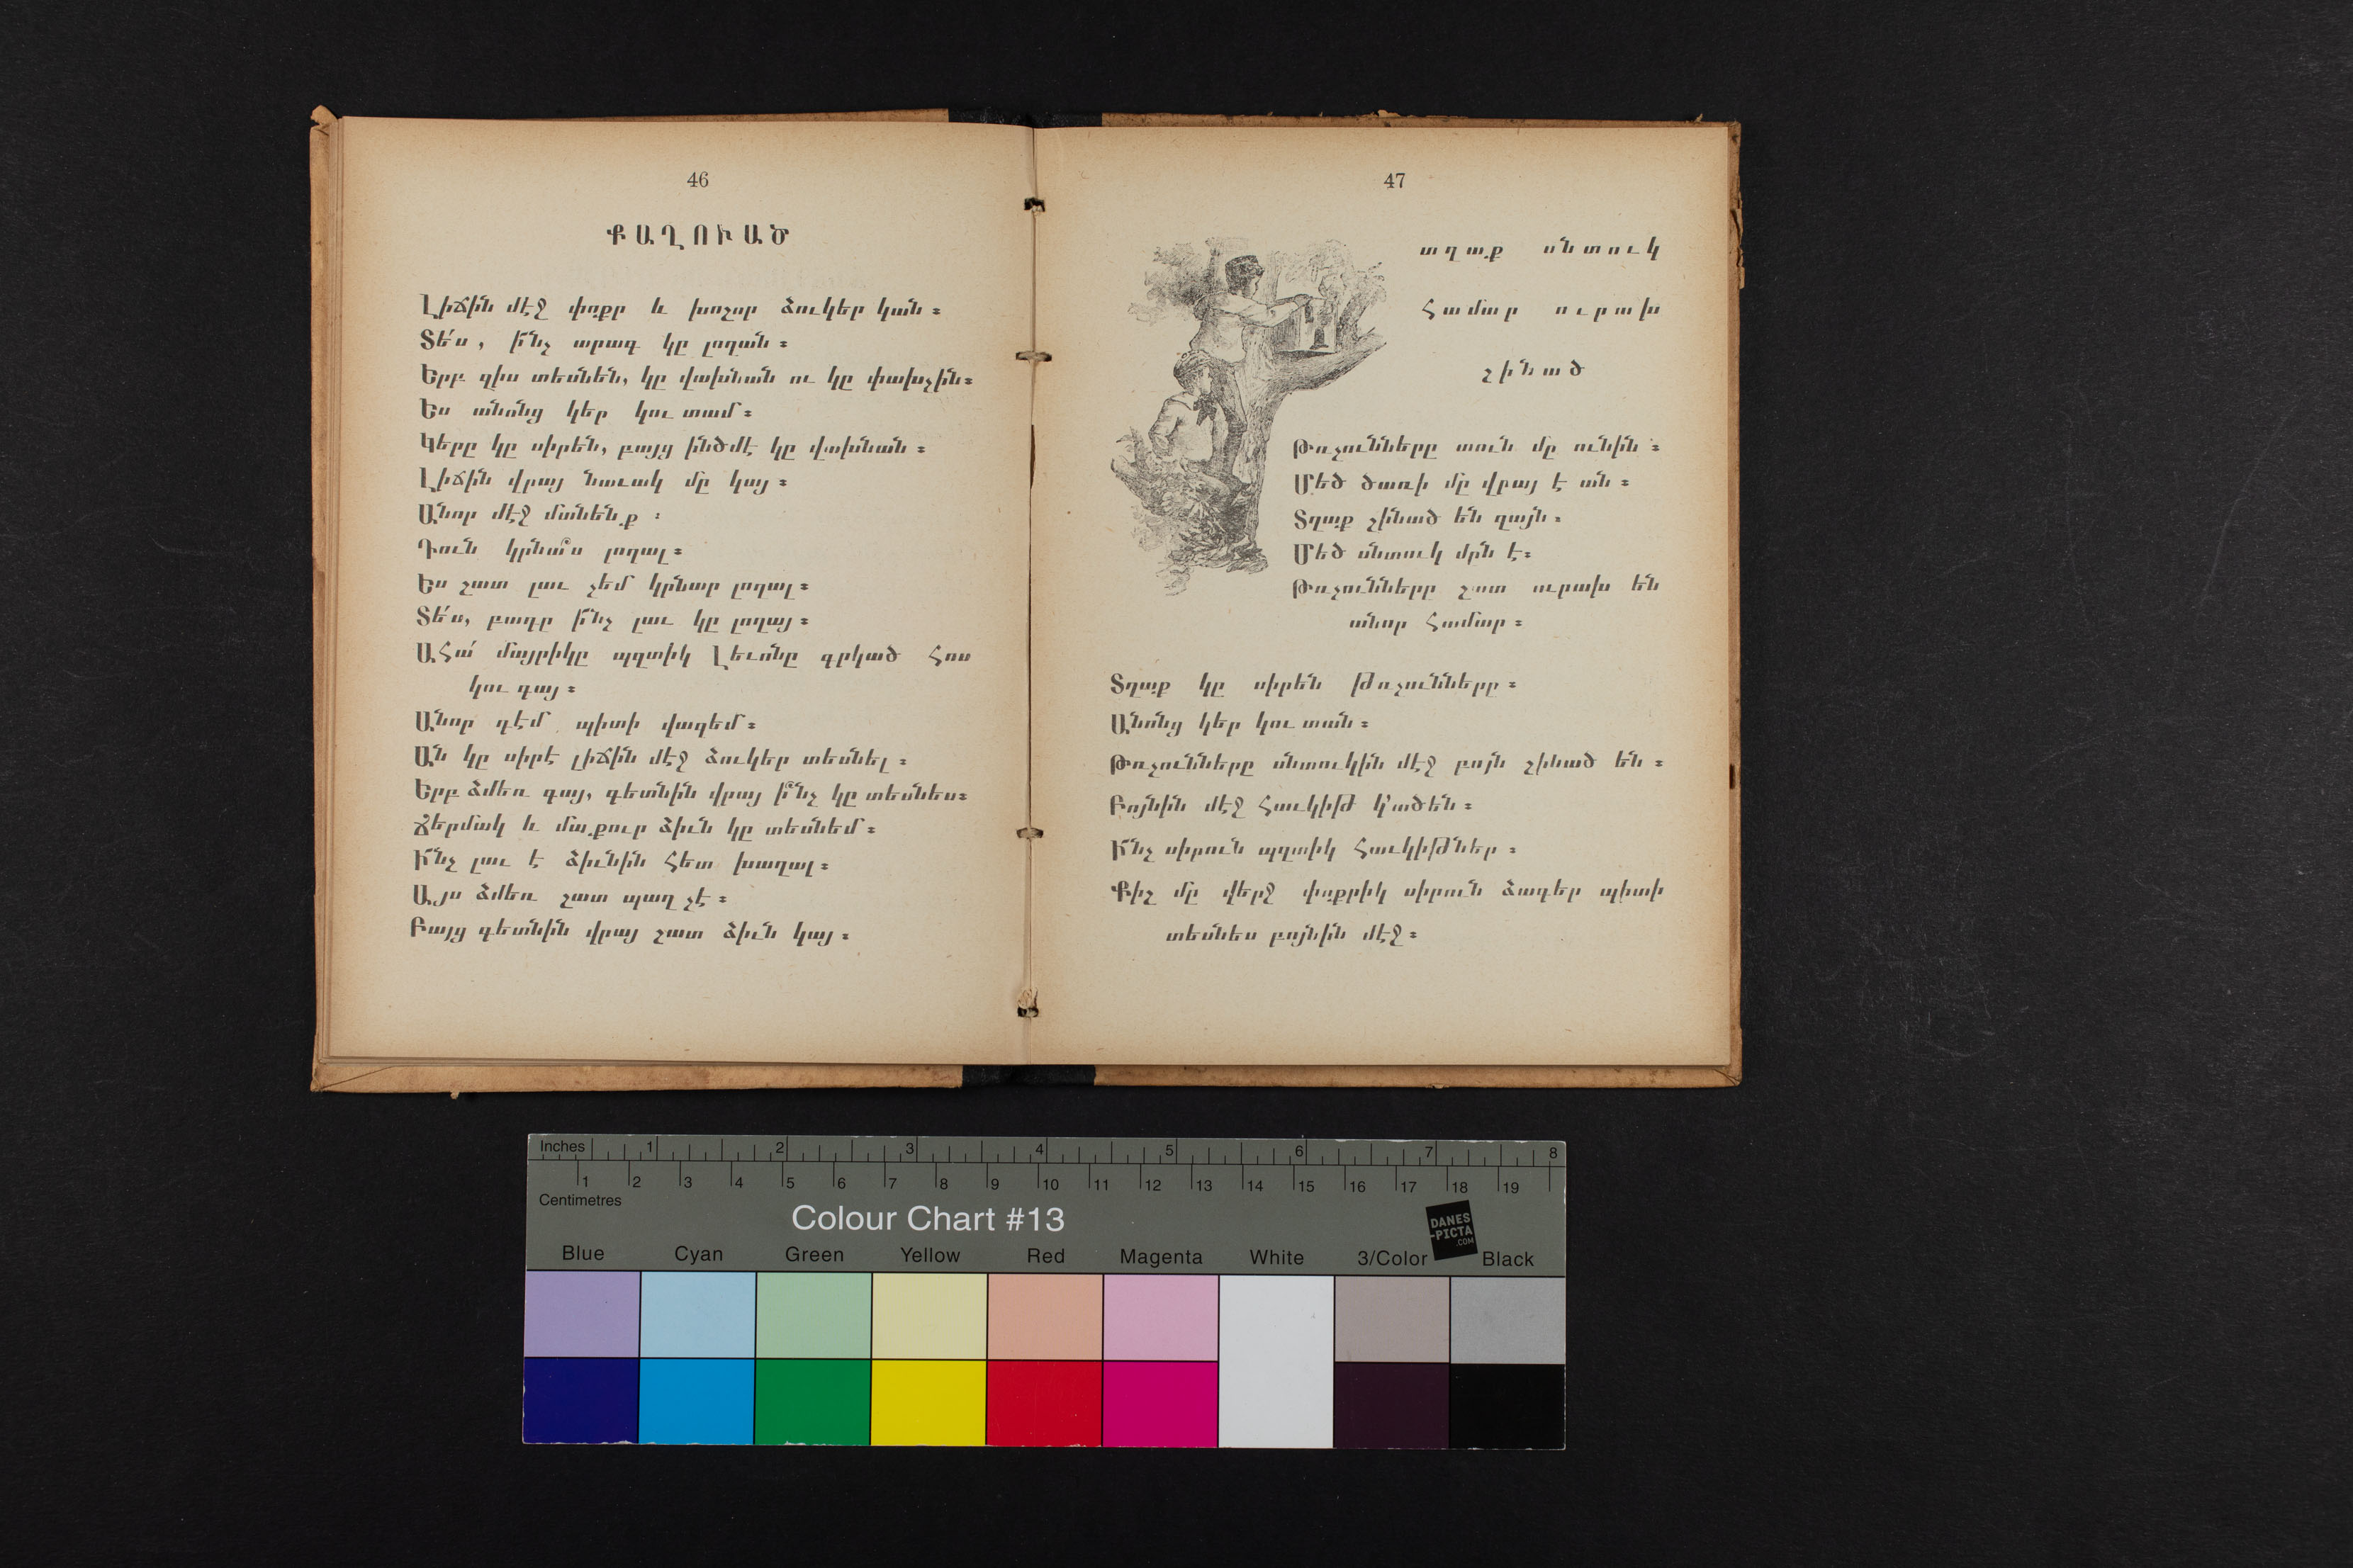 46
ՔԱՂՈՒԱԾ
Լիճին մէջ փոքր և խոշոր ձուկեր կան։
Տե՛ս, ի՜նչ արագ կը լողան։
Երբ զիս տեսնեն, կը վախնան ու կը փախչին։
Ես անոնց կեր կու տամ։
Կերը կը սիրեն, բայց ինծմէ կը վախնան։
Լիճին վրայ նաւակ մը կայ։
Անոր մէջ մտնենք։
Դուն կրնա՞ս լողալ։
Ես շատ լաւ չեմ կրնար լողալ։
Տե՛ս, բադը ի՜նչ լաւ կը լողայ։
Ահա՛ մայրիկը պզտիկ Լեւոնը գրկած հոս
կու գայ։
Անոր դէմ պիտի վազեմ։
Ան կը սիրէ լիճին մէջ ձուկեր տեսնել։
Երբ ձմեռ գայ, գետնին վրայ ի՞նչ կը տեսնես։
Ճերմակ և մաքուր ձիւն կը տեսնեմ։
Ի՜նչ լաւ է ձիւնին հետ խաղալ։
Այս ձմեռ շատ պաղ չէ։
Բայց գետնին վրայ շատ ձիւն կայ։
47
տղաք սնտուկ
համար ուրախ
շինած
Թռչունները տուն մը ունին։
Մեծ ծառի մը վրայ է ան։
Տղաք շինած են զայն։
Մեծ սնտուկ մըն է։
Թռչունները շատ ուրախ են
անոր համար։
Տղաք կը սիրեն թռչունները։
Անոնց կեր կու տան։
Թռչունները սնտուկին մէջ բոյն շինած են։
Բոյնին մէջ հաւկիթ կ՚ածեն։
Ի՜նչ սիրուն պզտիկ հաւկիթներ։
Քիչ մը վերջ փոքրիկ սիրուն ձագեր պիտի
տեսնես բոյնին մէջ։
Inches 1 2 3 4 5 6 7 8
1 2 3 4 5 6 7 8 9 10 11 12 13 14 15 16 17 18 19
Centimetres
Colour Chart #13
DANES
-PICTA
.COM
Blue Cyan Green Yellow Red Magenta White 3/Color Black